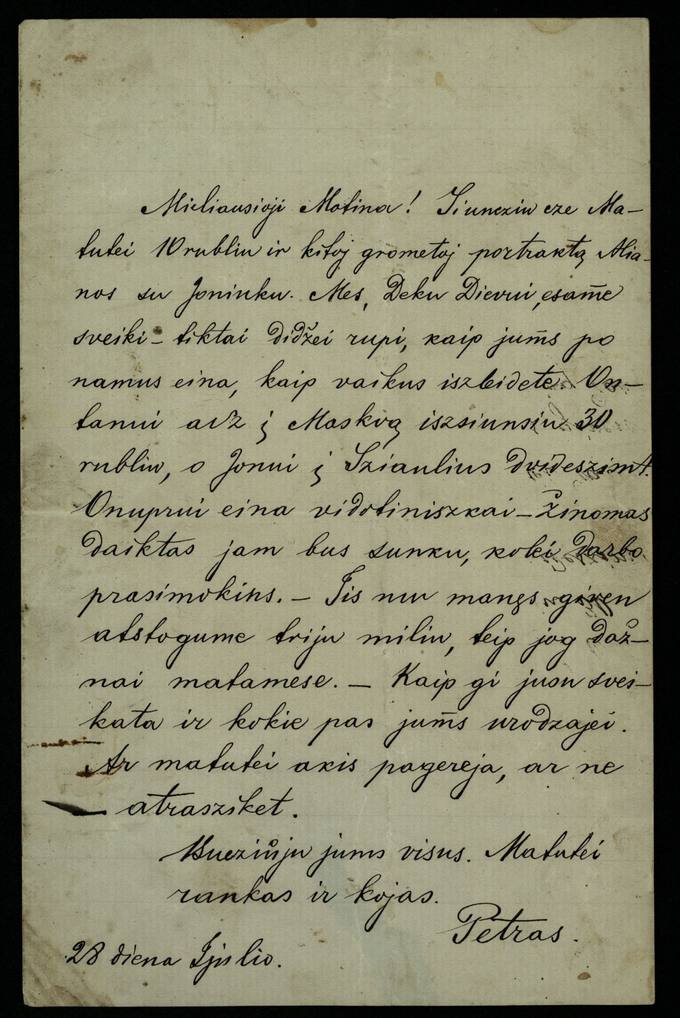 Mieliausioji Motina! Siuncziu cze Ma-
tutei 10 rubliu ir kitoj grometoj portraktą Mia-
nos su Joniuku. Mes, Deku Dievui, esame
sveiki – tiktai didžei rupi, kaip jum̃s po
namus eina, kaip vaikus iszleidete. On-
tanui asz į Maskvą iszsiunsiu 30
rubliu, o Jonui į Sziaulius dvideszimt.
Onuprui eina vidotiniszkai – žinomas
daiktas jam bus sunku, kolei darbo
prasimokins. – Jis nu manęs gįven
atstogume triju miliu, teip jog daž-
nai matamese. – Kaip gi jusu svei-
kata ir kokie pas jum̃s urodzajei.
Ar matutei akis pagereja, ar ne
– atrasziket.
Bucziůju jums visus. Matutei
rankas ir kojas.
Petras.
28 diena Ijulio.